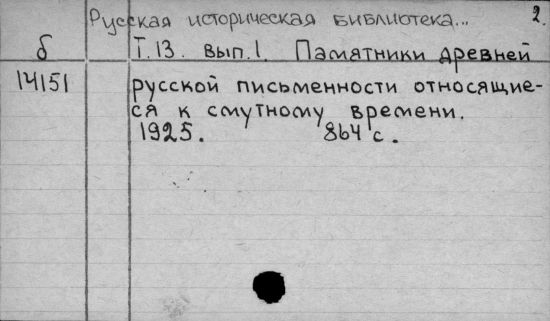 Русская историческая библиотека... 2.
б Т.13. вып.1. Памятники древней
14151 русской письменности относящие-
ся к смутному времени.
1925. 864 с.